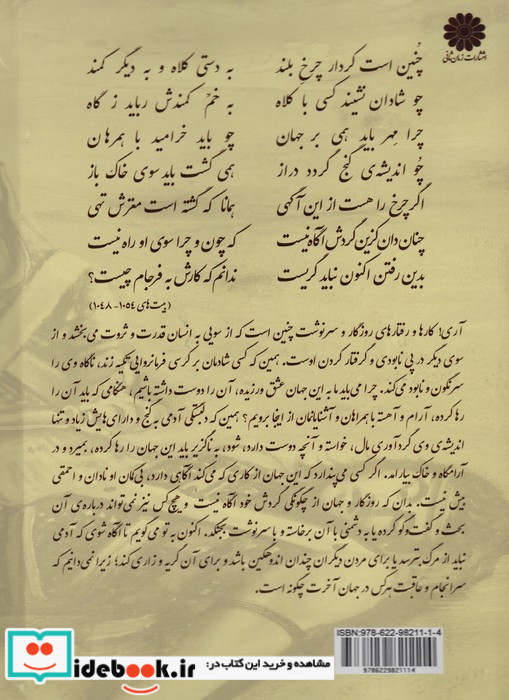 انتشارات زمان‌شانی
چُنین است کردار چرخِ بلند به دستی کلاه و به دیگر کمند
چو شادان نشیند کسی با کلاه به خمّ کمندش رباید ز گاه
چرا مِهر باید همی بر جهان چو باید خرامید با همرهان
چُو اندیشه‌ی گنج گردد دراز همی گشت باید سوی خاک باز
اگر چرخ را هست از این آگهی همانا که گشته است مغزش تهی
چنان دان کزین گردش آگاه نیست که چون و چرا سوی او راه نیست
بدین رفتن اکنون نباید گریست ندانم که کارش به فرجام چیست؟
(بیت‌های ۱۰۵۴-۱۰۴۸)
آری! کارها و رفتارهای روزگار و سرنوشت چنین است که از سویی به انسان قدرت و ثروت می‌بخشد و از
سوی دیگر در پی نابودی و گرفتار کردن اوست. همین که کسی شادمان بر کرسی فرمانروایی تکیه زند، ناگاه وی را
سرنگون و نابود می‌کند. چرا می‌باید ما به این جهان عشق ورزیده، آن را دوست داشته باشیم، هنگامی که باید آن را
رها کرده، آرام و آهسته با همراهان و آشنایانمان از اینجا برویم؟ همین که دلبستگی آدمی به گنج و دارایی‌هایش زیاد و تنها
اندیشه‌ی وی گردآوری مال، خواسته و آنچه دوست دارد، شود، به ناگزیر باید این جهان را رها کرده، بمیرد و در
آرامگاه و خاک بیارامد. اگر کسی می‌پندارد که این جهان از کاری که می‌کند آگاهی دارد، بی‌گمان او نادان و احمقی
بیش نیست، بدان که روزگار و جهان از چگونگی گردش خود آگاه نیست و هیچ‌کس نیز نمی‌تواند درباره‌ی آن
بحث و گفت‌وگو کرده یا به دشمنی با آن برخاسته و با سرنوشت بجنگد. اکنون به تو می‌گویم تا آگاه شوی که آدمی
نباید از مرگ بترسد یا برای مردن دیگران چندان اندوهگین باشد و برای آن گریه و زاری کند؛ زیرا نمی‌دانیم که
سرانجام و عاقبت هرکس در جهان آخرت چگونه است.
ISBN: 978-622-98211-1-4
9786229821114
مشاهده و خرید این کتاب در: idebook.ir